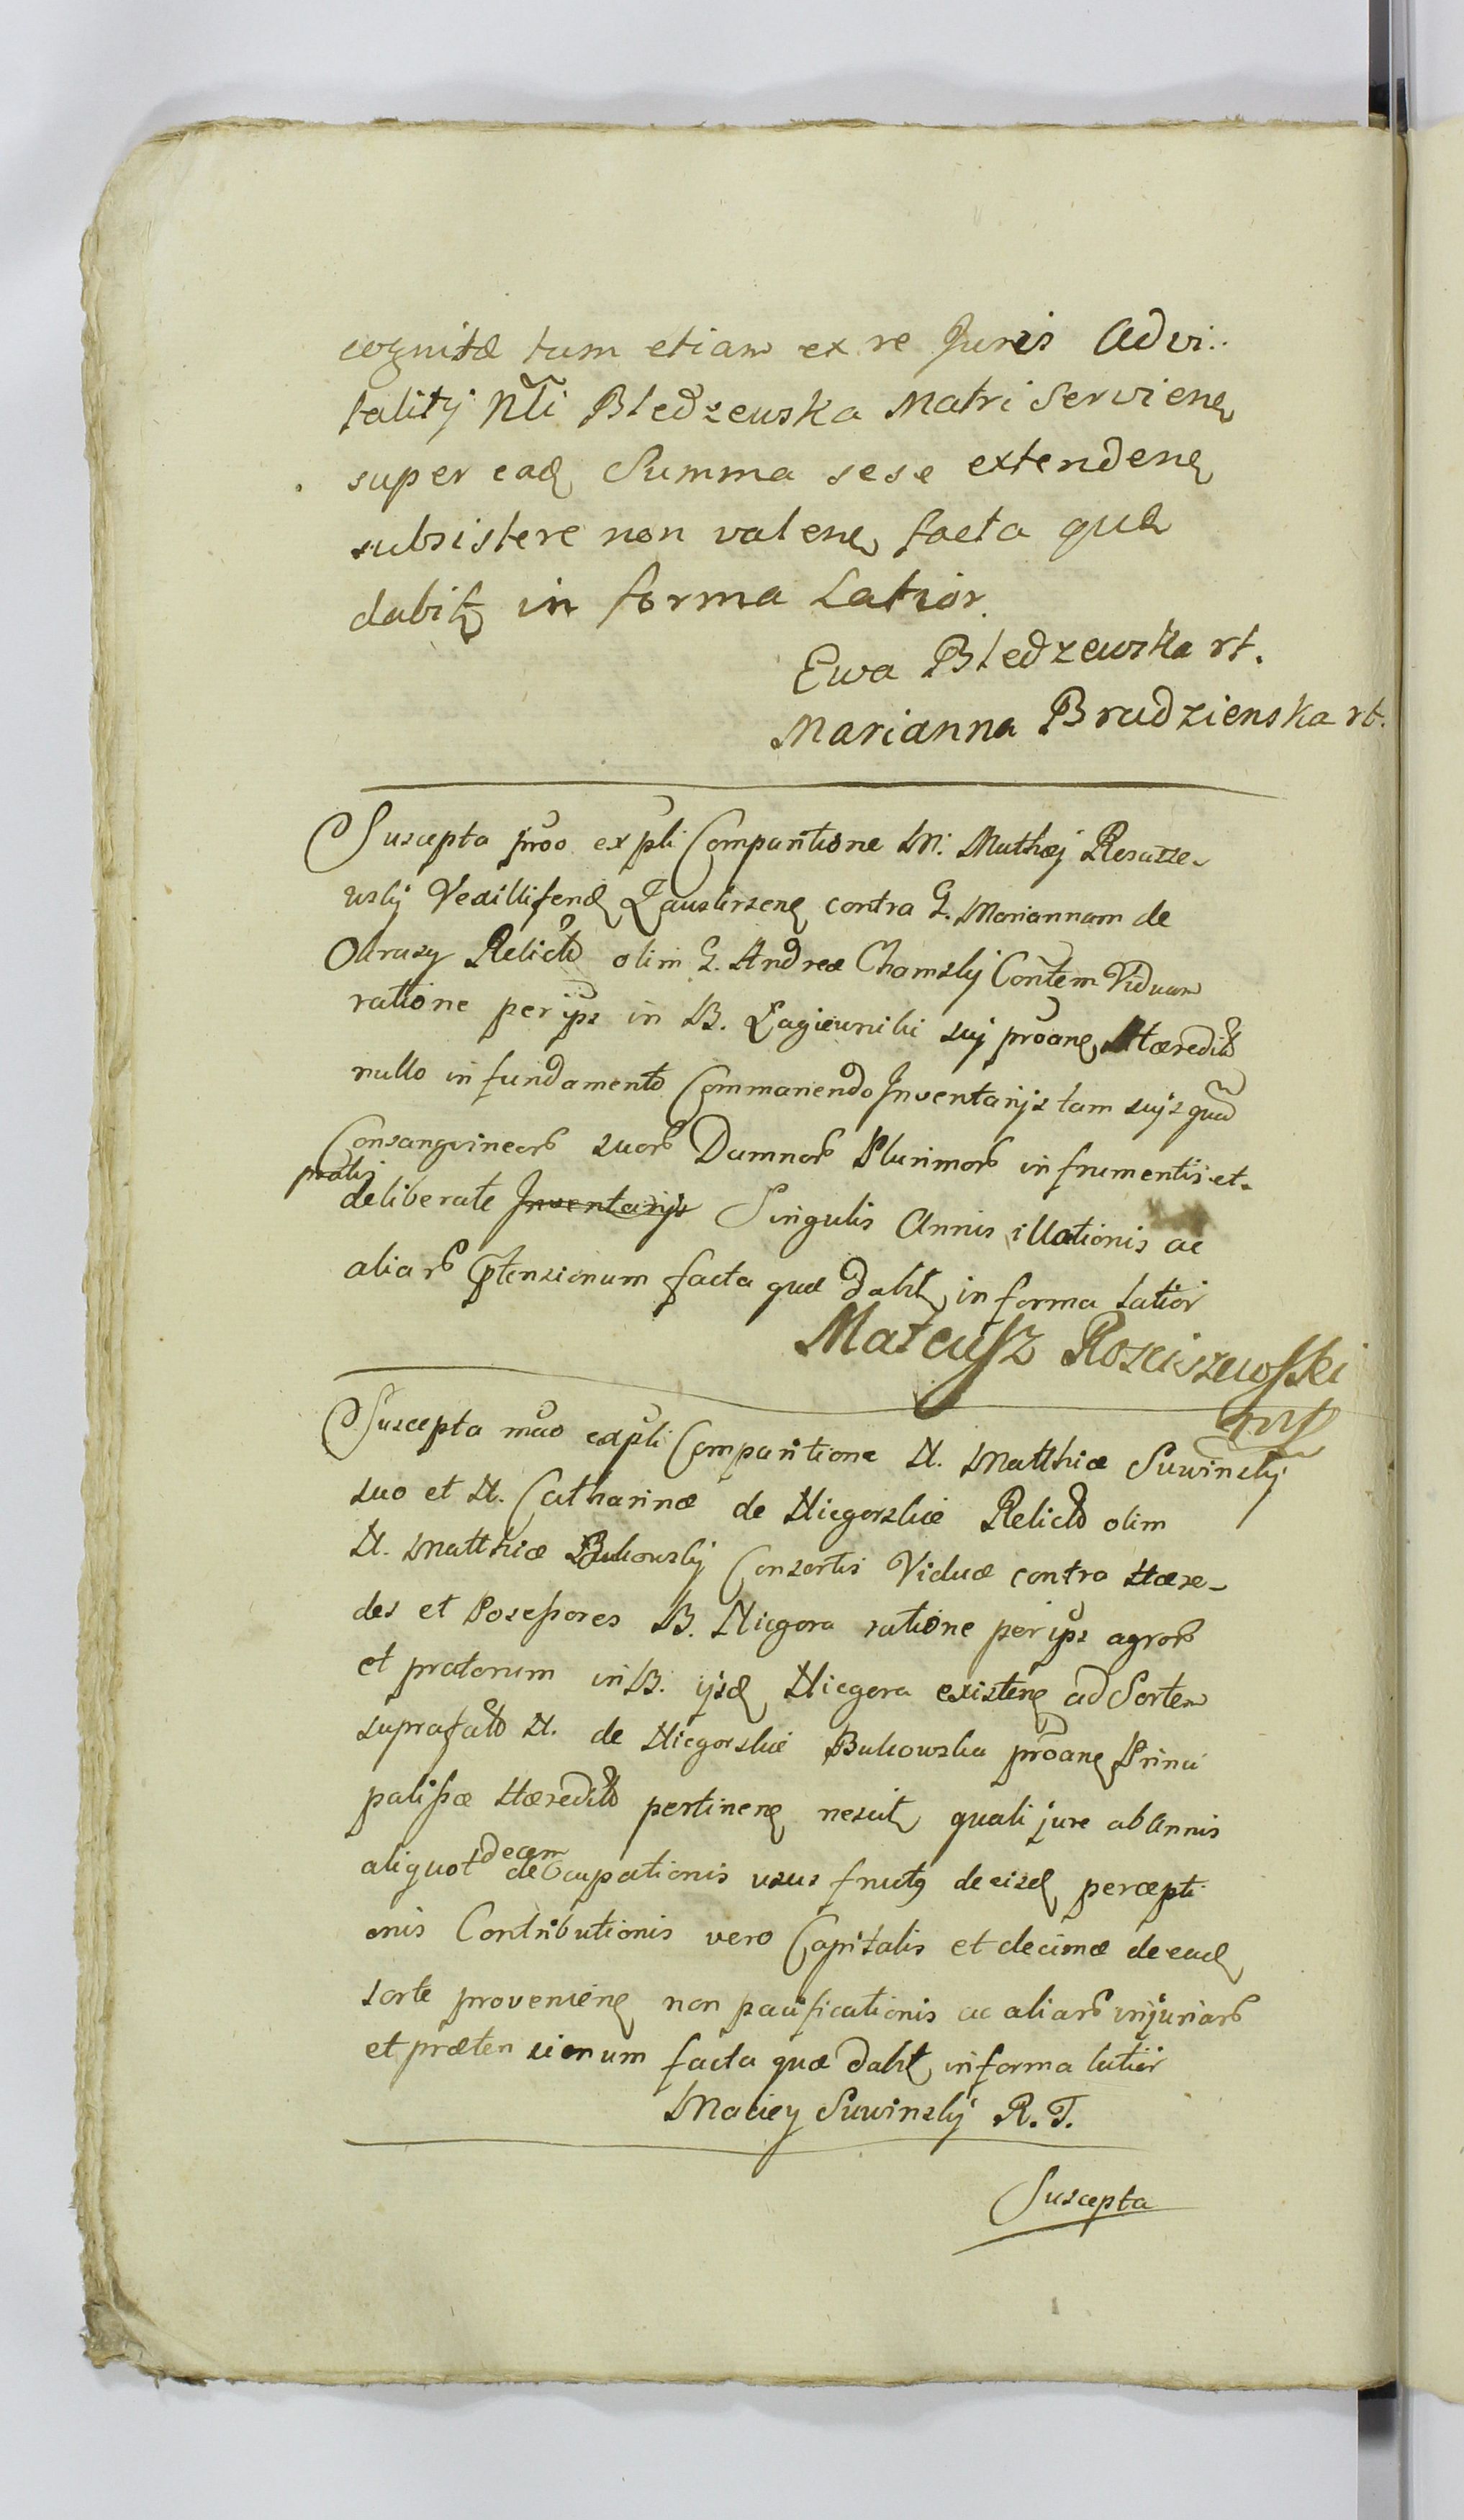 cognitæ tum etiam ex re Juris Advi..
talitij Nli Bledzewska Matri servien
super ead Summa sese extenden
subsistere non valen facta quæ
dabit in forma Latior
Ewa Bledzewska rt.
Marianna Brudzienska rt.
Suscepta pro expli Comparitione M. Mathæj Rosusze-
wskj Vexilliferi contra G. Mariannam de
Relict olim G. Andreæ Chamskj Contem Viduam
ratione per ips in B. Łagiewniki suj proane Hæredit
nullo in fundamento Commanendo Inventarijs tam sujs quam
Consangvineor suor Damnor Plurimor in frumentis et
pratis
deliberate Inventarijs Singulis Annis illationis ac
aliar ptensionum facta quæ dabit in forma latior
Mateusz Rosciszewski
mp
Suscepta mao expli Comparitione N. Matthiæ Suwinskj
suo et N. Catharinæ de Niegorskie Relict olim
N. Matthiæ Bukowskj Consortis Viduæ contra Hære-
des et Posessores B. Niegora ratione per ips agror
et pratorum in B. ijsd Niegora existen ad Sortem
suprafat N. de Niegorskie Bukowska proane Princi
palissæ Hæredit pertinen nescit quali jure ab Annis
decem
aliquot de Occupationis usus fruct de eisd percepti
onis Contributionis vero Capitalis et decimæ de ead
sorte provenien non pacificationis ac aliar injuriar
et prætensionum facta quæ dabit in forma latior
Maciey Suwinskj R. T.
Suscepta